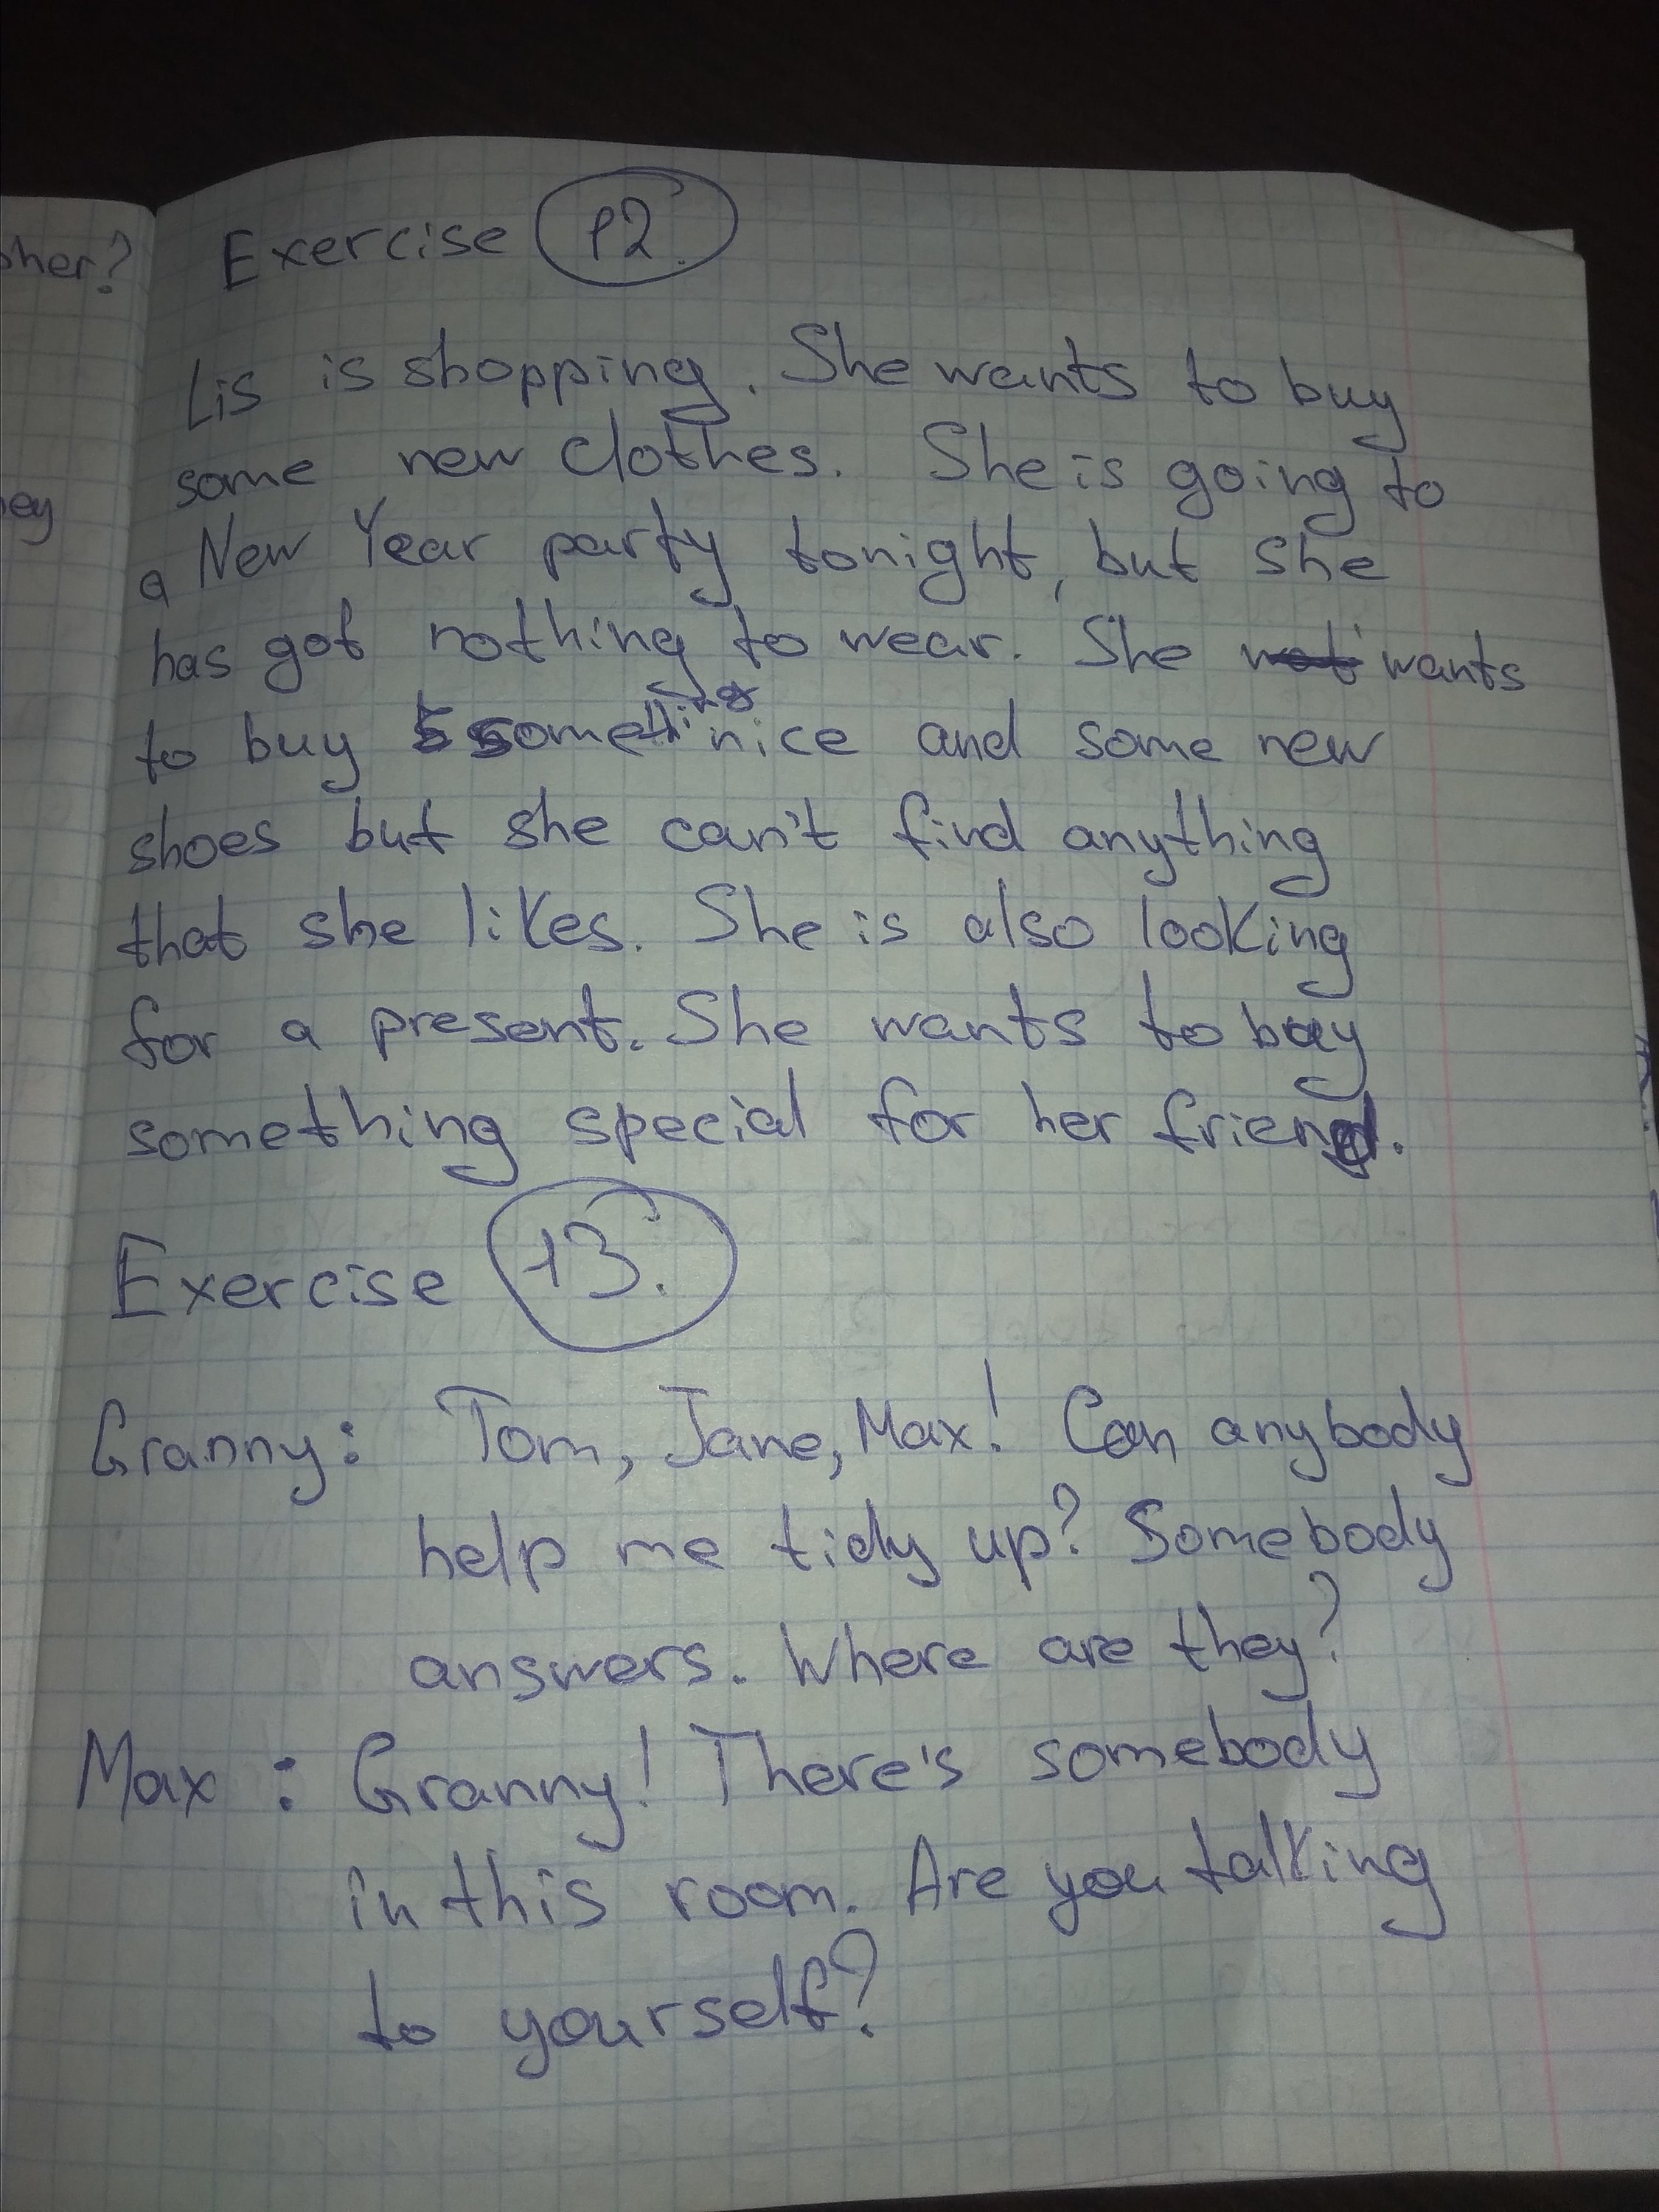 Exercise 12.
Lis is shopping. She wants to buy
some new clothes. She is going to
a New Year party tonight, but she
has got nothing to wear. She wants
to buy something nice and some new
shoes but she can't find anything
that she likes. She is also looking
for a present. She wants to buy
something special for her friend.
Exercise 13.
Granny: Tom, Jane, Max! Can anybody
help me tidy up? Somebody
answers. Where are they?
Max : Granny! There's somebody
in this room. Are you talking
to yourself?